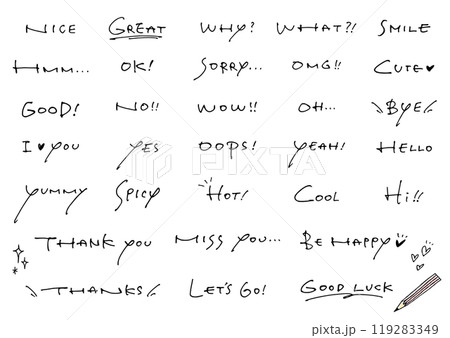 NICE GREAT WHY? WHAT?! SMILE
HMM... OK! SORRY... OMG!! CUTE♥
GOOD! NO!! WOW!! OH... BYE
I♥YOU YES OOPS! YEAH! HELLO
YUMMY SPICY HOT! COOL HI!!
THANK YOU MISS YOU... BE HAPPY
THANKS LET'S GO! GOOD LUCK
PIXTA
pixta.jp - 119283349